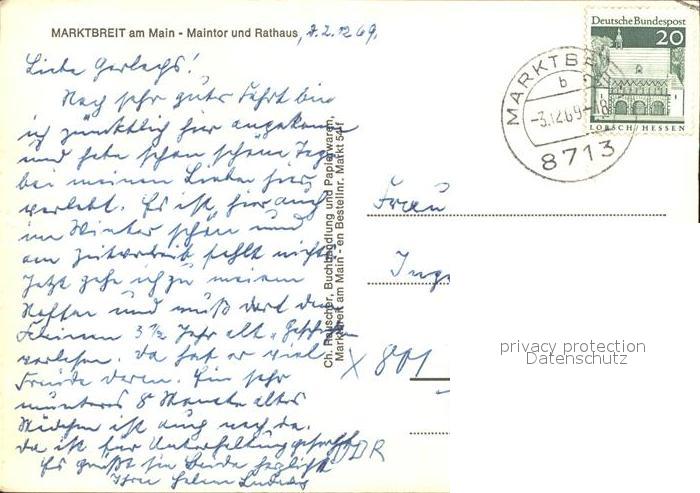 MARKTBREIT am Main - Maintor und Rathaus, 3.2.1269.
Liebe Gerlachs!
Nach sehr guter Fahrt bin
ich pünktlich hier angekommen
und habe schon schöne Tage
bei meinen Lieben hier
verlebt. Es ist hier auch
im Winter schön und
am Zeitvertreib fehlt nichts
Jetzt gehe ich zu meinem
Neffen und muß dort dem
Kleinen 3 ½ Jahr alt, Geschichten
vorlesen. Da hat er viel
Freude daran. Ein sehr
munteres 8 Monate altes
Mädchen ist auch noch da.
da ist für Unterhaltung gesorgt
Es grüßt Sie Beide herzlichst
Ihre Helene
Ch. Rauscher, Buchhandlung und Papierwaren,
Marktbreit am Main - en Bestellnr. Markt
Deutsche Bundespost
20
LORSCH/HESSEN
MARKTBREIT
b
-3.12.69-18
8713
Frau
Inge
X 801
DDR
privacy protection
Datenschutz